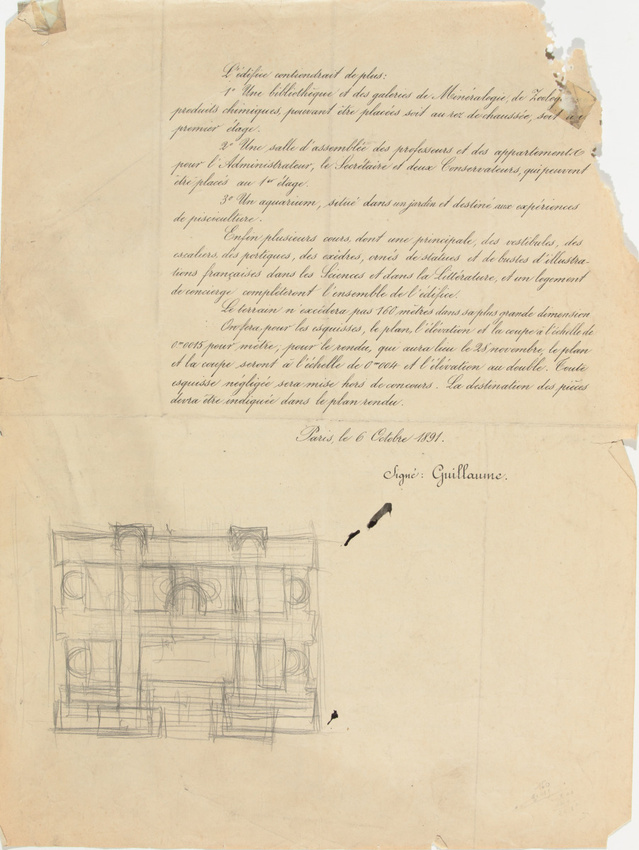 L'édifice contiendrait de plus:
1° Une bibliothèque et des galeries de Minéralogie, de Zoolog
produits chimiques, pouvant être placées soit au rez de chaussée, soit au
premier étage.
2° Une salle d'assemblée des professeurs et des appartements
pour l'Administrateur, le Secrétaire et deux Conservateurs, qui peuvent
être placés au 1er étage.
3° Un aquarium, situé dans un jardin et destiné aux expériences
de pisciculture.
Enfin plusieurs cours, dont une principale, des vestibules, des
escaliers, des portiques, des exèdres, ornés de statues et de bustes d'illustra-
tions françaises dans les Sciences et dans la Littérature, et un logement
de concierge complèteront l'ensemble de l'édifice.
Le terrain n'excédera pas 160 mètres dans sa plus grande dimension
On fera pour les esquisses, le plan, l'élévation et la coupe à l'échelle de
0m0015 pour mètre; pour le rendu, qui aura lieu le 28 novembre, le plan
et la coupe seront à l'échelle de 0m004 et l'élévation au double. Toute
esquisse négligée sera mise hors de concours. La destination des pièces
devra être indiquée dans le plan rendu.
Paris, le 6 Octobre 1891.
Signé: Guillaume.